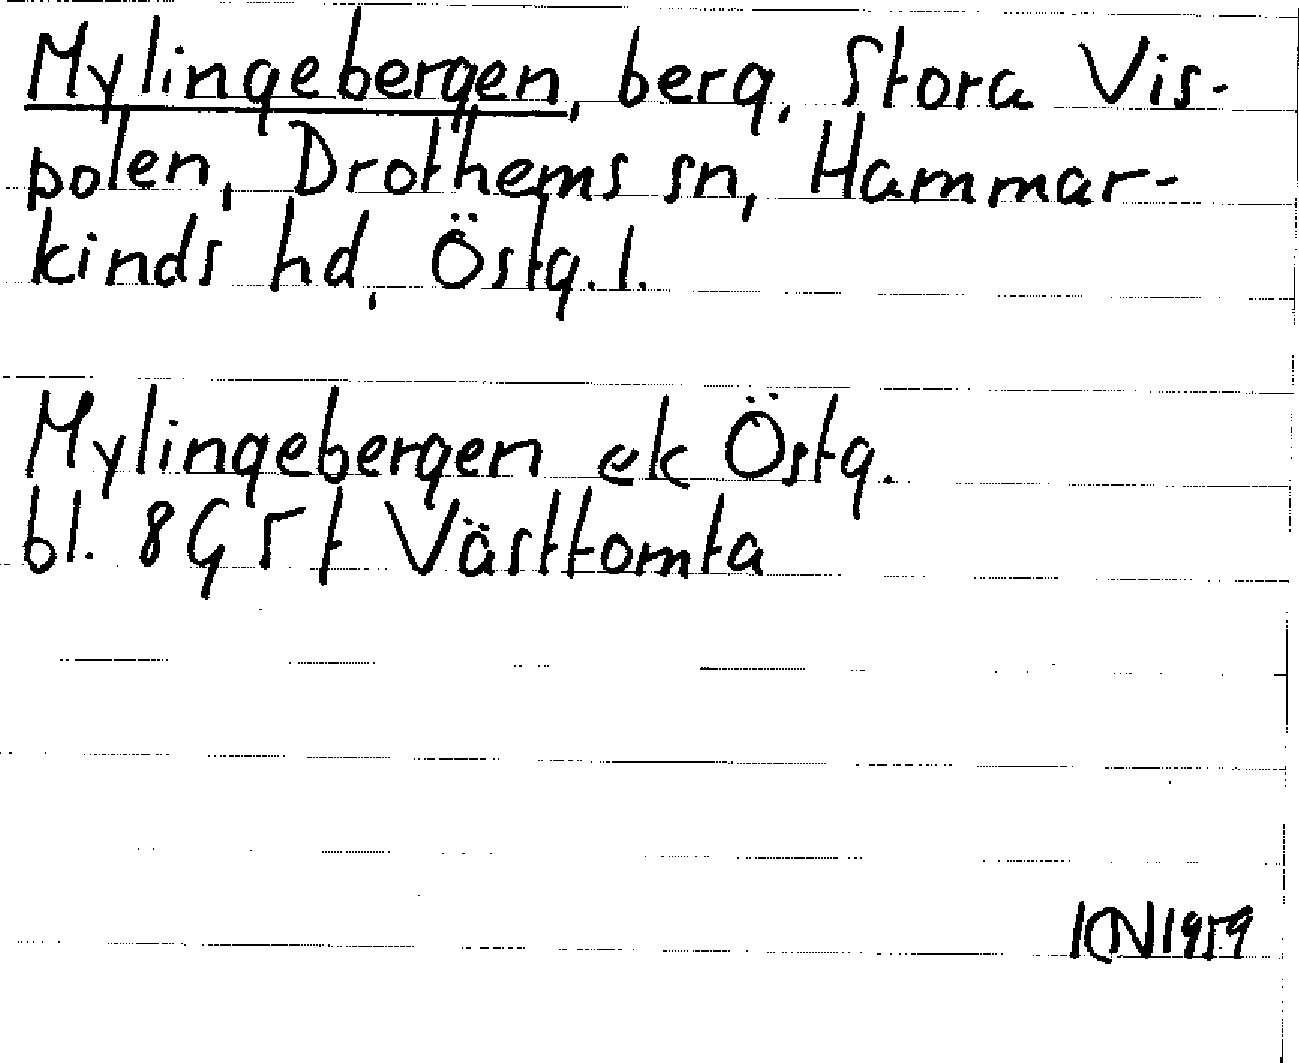 Mylingebergen, berg, Stora Vis-
polen, Drothems sn, Hammar-
kinds hd, Östg. l.
Mylingebergen ek Östg.
bl. 8G 5f Västtomta
1959